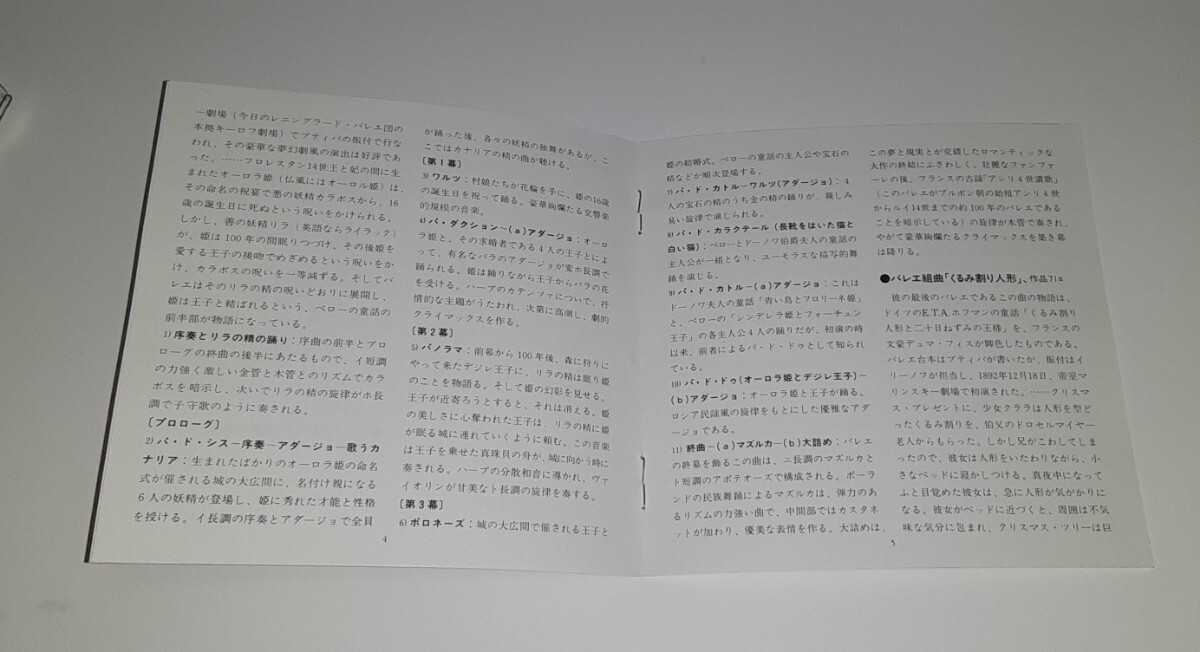 ー劇場（今日のレニングラード・バレエ団の
本拠キーロフ劇場）でプティパの振付で行な
われ、その豪華な夢幻劇風の演出は好評であ
った。……フロレスタン14世王と妃の間に生
まれたオーロラ姫（仏風にはオーロル姫）は、
その命名の祝宴で悪の妖精カラボスから、16
歳の誕生日に死ぬという呪いをかけられる。
しかし、善の妖精リラ（英語ならライラック）
が、姫は100年の間眠りつづけ、その後姫を
愛する王子の接吻でめざめるという呪いをか
け、カラボスの呪いを一等減ずる。そしてバ
レエはそのリラの精の呪いどおりに展開し、
姫は王子と結ばれるという、ペローの童話の
前半部が物語になっている。
1)序奏とリラの精の踊り：序曲の前半とプロ
ローグの終曲の後半にあたるもので、イ短調
の力強く激しい金管と木管とのリズムでカラ
ボスを暗示し、次いでリラの精の旋律がホ長
調で子守歌のように奏される。
〔プロローグ〕
2)パ・ド・シス−序奏−アダージョ−歌うカ
ナリア：生まれたばかりのオーロラ姫の命名
式が催される城の大広間に、名付け親になる
6人の妖精が登場し、姫に秀れた才能と性格
を授ける。イ長調の序奏とアダージョで全員
4
が踊った後、各々の妖精の独舞があるが、こ
こではカナリアの精の曲が聴ける。
〔第1幕〕
3)ワルツ：村娘たちが花輪を手に、姫の16歳
の誕生日を祝って踊る。豪華絢爛たる交響楽
的規模の音楽。
4)パ・ダクション−(a)アダージョ：オーロ
ラ姫と、その求婚者である4人の王子とによ
って、有名なバラのアダージョが変ホ長調で
踊られる。姫は踊りながら王子からバラの花
を受ける。ハープのカデンツァについで、抒
情的な主題がうたわれ、次第に高潮し、劇的
クライマックスを作る。
〔第2幕〕
5)パノラマ：前幕から100年後、森に狩りに
やって来たデジレ王子に、リラの精は眠り姫
のことを物語る。そして姫の幻影を見せる。
王子が近寄ろうとすると、それは消える。姫
の美しさに心奪われた王子は、リラの精に姫
が眠る城に連れていくように頼む。この音楽
は王子を乗せた真珠貝の舟が、城に向かう時に
奏される。ハープの分散和音に導かれ、ヴァ
イオリンが甘美なト長調の旋律を奏する。
〔第3幕〕
6)ポロネーズ：城の大広間で催される王子と
姫の結婚式。ペローの童話の主人公や宝石の
精などが順次登場する。
7)パ・ド・カトル−ワルツ(アダージョ)：4
人の宝石の精のうち金の精の踊りが、親しみ
易い旋律で演じられる。
8)パ・ド・カラクテール（長靴をはいた猫と
白い猫)：ペローとドーノワ伯爵夫人の童話の
主人公が一組となり、ユーモラスな描写的舞
踊を演じる。
9)パ・ド・カトル−(a)アダージョ：これは
ドーノワ夫人の童話「青い鳥とフロリーネ姫」
と、ペローの「シンデレラ姫とフォーチュン
王子」の各主人公4人の踊りだが、初演の時
以来、前者によるパ・ド・ドゥとして知られ
ている。
10)パ・ド・ドゥ(オーロラ姫とデジレ王子)−
(b)アダージョ：オーロラ姫と王子が踊る。
ロシア民謡風の旋律をもとにした優雅なアダ
ージョである。
11)終曲−(a)マズルカ−(b)大詰め：バレエ
の終幕を飾るこの曲は、ニ長調のマズルカと
ト短調のアポテオーズで構成される。ポーラ
ンドの民族舞踊によるマズルカは、弾力のあ
るリズムの力強い曲で、中間部ではカスタネ
ットが加わり、優美な表情を作る。大詰めは、
この夢と現実とが交錯したロマンティックな
大作の終結にふさわしく、壮麗なファンファ
ーレの後、フランスの古謡「アンリ4世讃歌」
（このバレエがブルボン朝の始祖アンリ4世
からルイ14世までの約100年のバレエである
ことを暗示している）の旋律が木管で奏され、
やがて豪華絢爛たるクライマックスを築き幕
は降りる。
●バレエ組曲「くるみ割り人形」、作品71a
彼の最後のバレエであるこの曲の物語は、
ドイツのE.T.A.ホフマンの童話「くるみ割り
人形と二十日ねずみの王様」を、フランスの
文豪デュマ・フィスが脚色したものである。
バレエ台本はプティパが書いたが、振付はイ
リーノフが担当し、1892年12月18日、帝室マ
リンスキー劇場で初演された。……クリスマ
ス・プレゼントに、少女クララは人形を型ど
ったくるみ割りを、伯父のドロセルマイヤー
老人からもらった。しかし兄がこわしてしま
ったので、彼女は人形をいたわりながら、小
さなベッドに寝かしつける。真夜中になって
ふと目覚めた彼女は、急に人形が気がかりに
なる。彼女がベッドに近づくと、周囲は不気
味な気分に包まれ、クリスマス・ツリーは巨
5